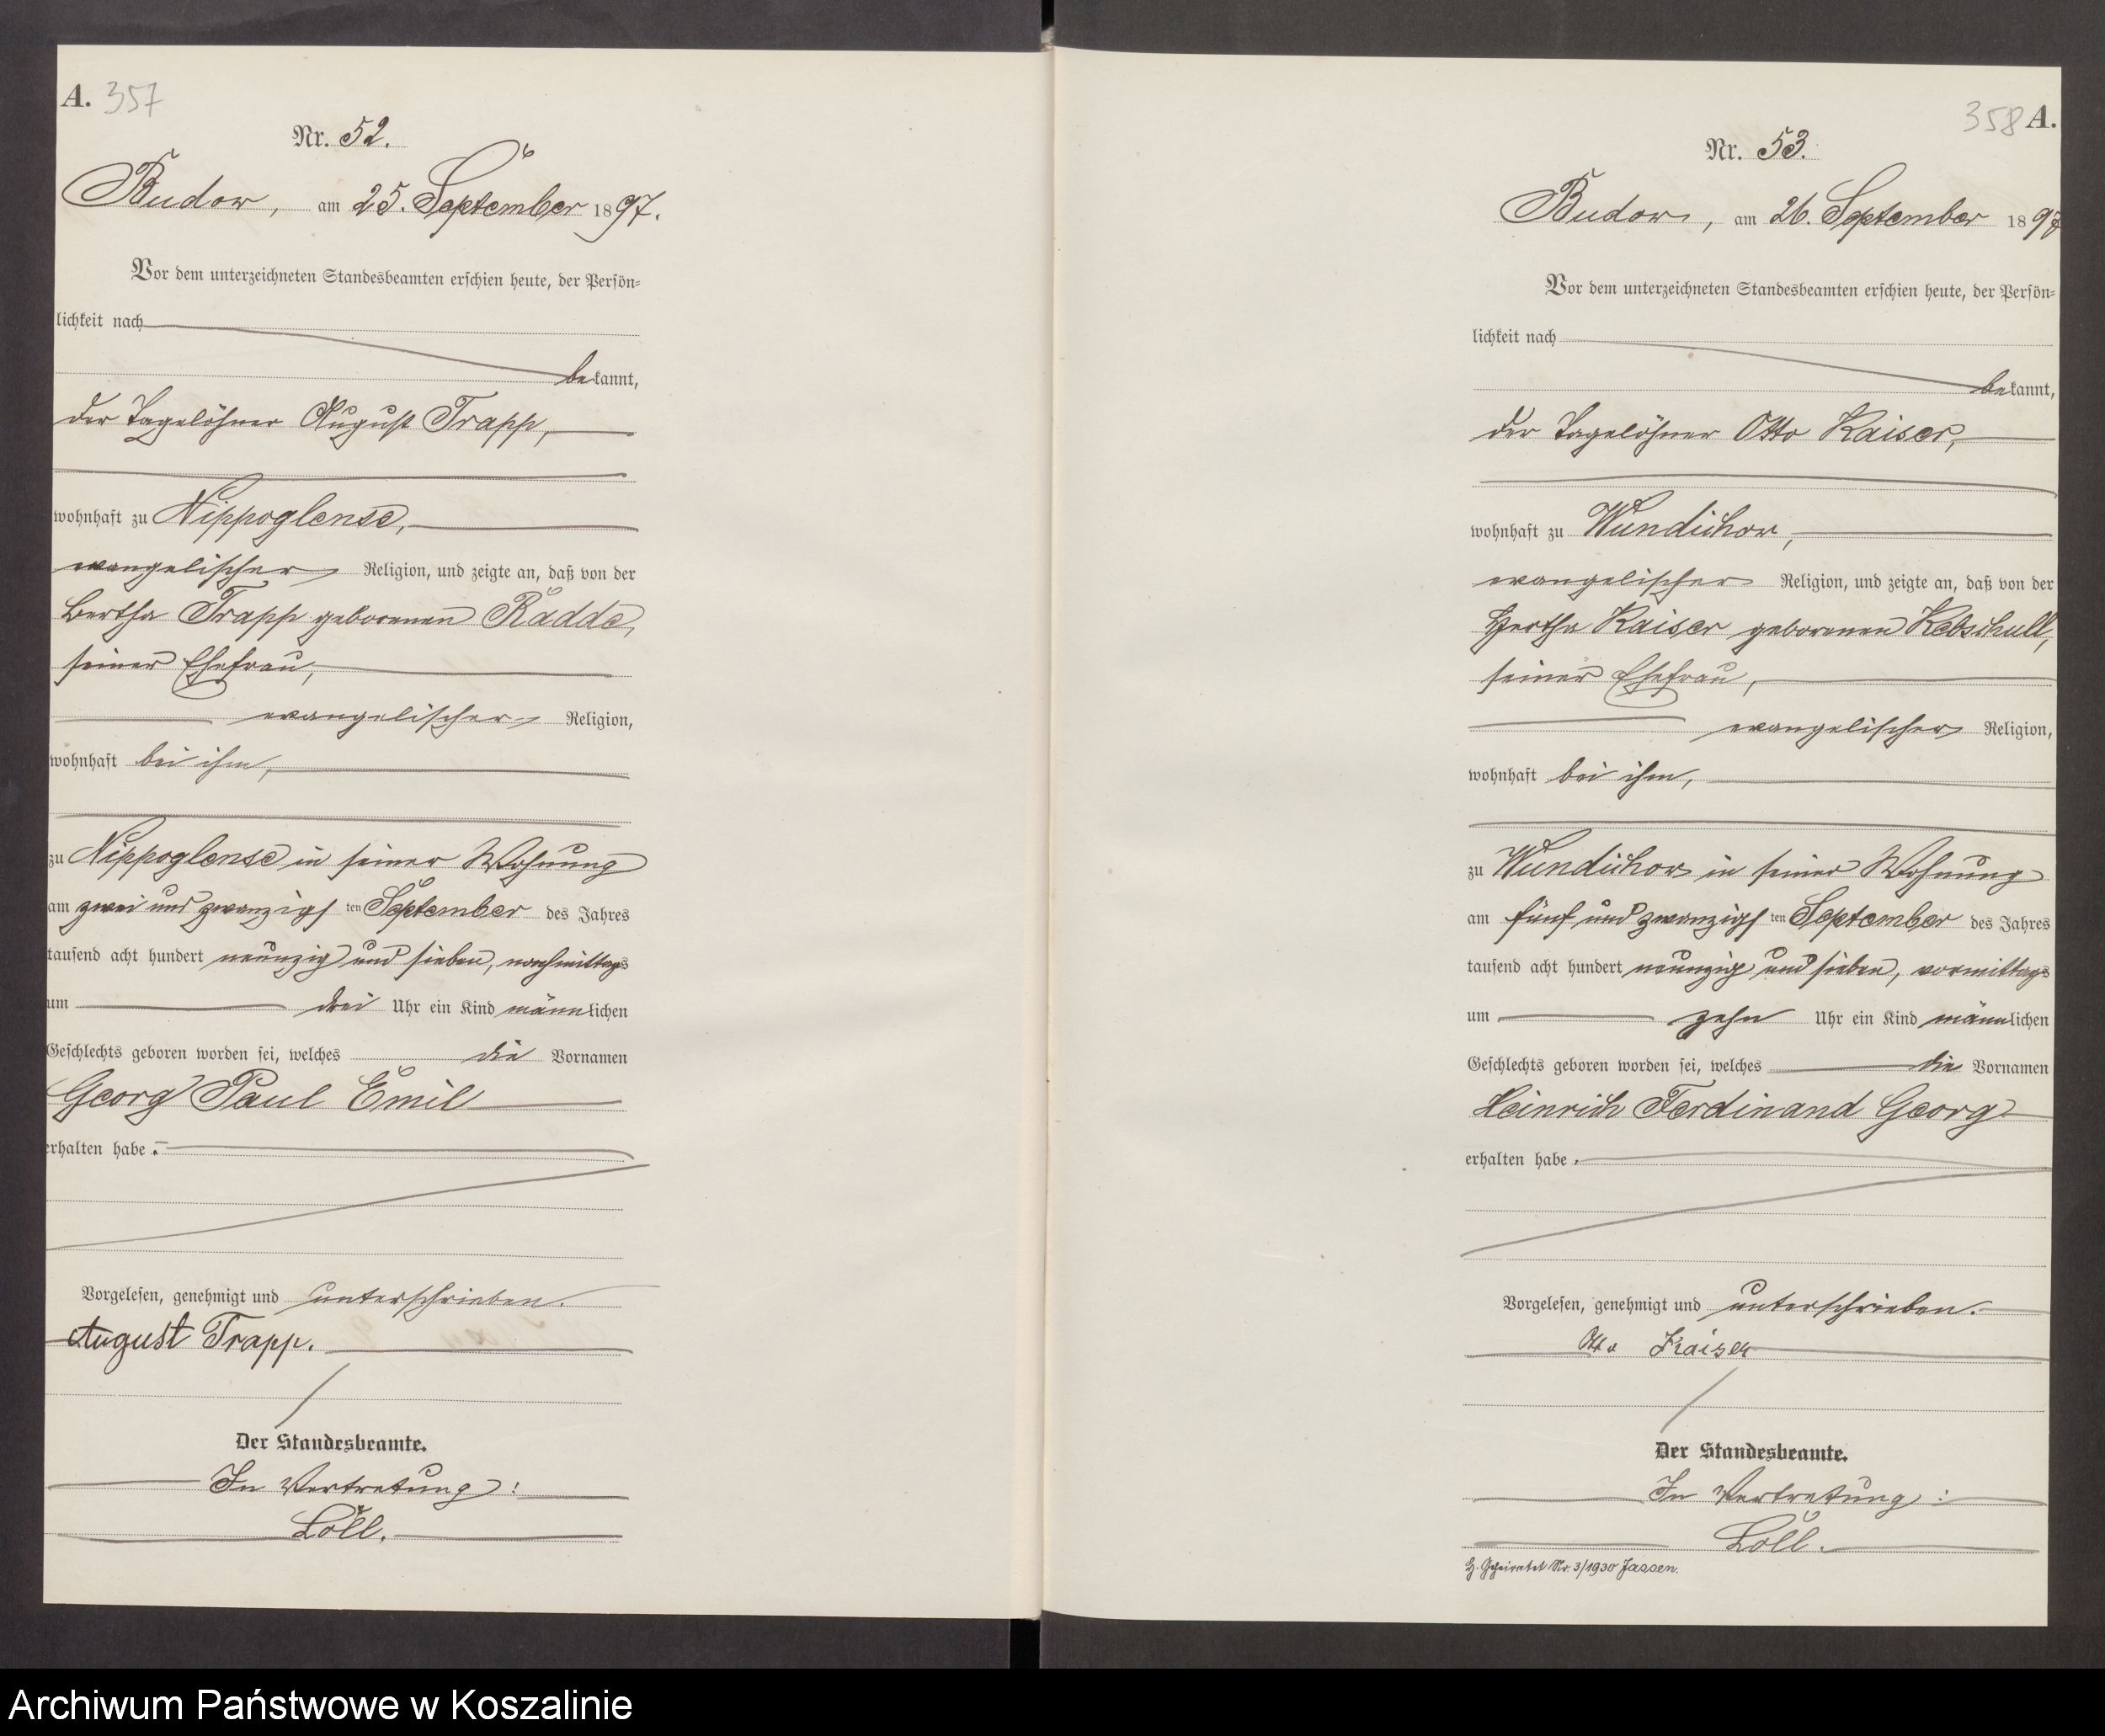 A. 357
Nr. 52.
Budow, am 25. September 1897.
Vor dem unterzeichneten Standesbeamten erschien heute, der Persön-
lichkeit nach
bekannt,
der Tagelöhner August Trapp,
wohnhaft zu Nippoglense,
evangelischer Religion, und zeigte an, daß von der
Bertha Trapp geborenen Radde,
seiner Ehefrau,
evangelischer Religion,
wohnhaft bei ihm,
zu Nippoglense in seiner Wohnung
am zwei und zwanzigsten September des Jahres
tausend acht hundert neunzig und sieben, nachmittags
um drei Uhr ein Kind männlichen
Geschlechts geboren worden sei, welches die Vornamen
Georg Paul Emil
erhalten habe.
Vorgelesen, genehmigt und unterschrieben.
August Trapp.
Der Standesbeamte.
In Vertretung:
Löll.
358 A.
Nr. 53.
Budow, am 26. September 1897
Vor dem unterzeichneten Standesbeamten erschien heute, der Persön-
lichkeit nach
bekannt,
der Tagelöhner Otto Kaiser,
wohnhaft zu Wundichow,
evangelischer Religion, und zeigte an, daß von der
Hertha Kaiser geborenen Kebschull,
seiner Ehefrau,
evangelischer Religion,
wohnhaft bei ihm,
zu Wundichow in seiner Wohnung
am fünf und zwanzigsten September des Jahres
tausend acht hundert neunzig und sieben, vormittags
um zehn Uhr ein Kind männlichen
Geschlechts geboren worden sei, welches die Vornamen
Heinrich Ferdinand Georg
erhalten habe.
Vorgelesen, genehmigt und unterschrieben.
Otto Kaiser
Der Standesbeamte.
In Vertretung:
Löll.
H. Geheiratet Nr. 3/1930 Jassen.
Archiwum Państwowe w Koszalinie